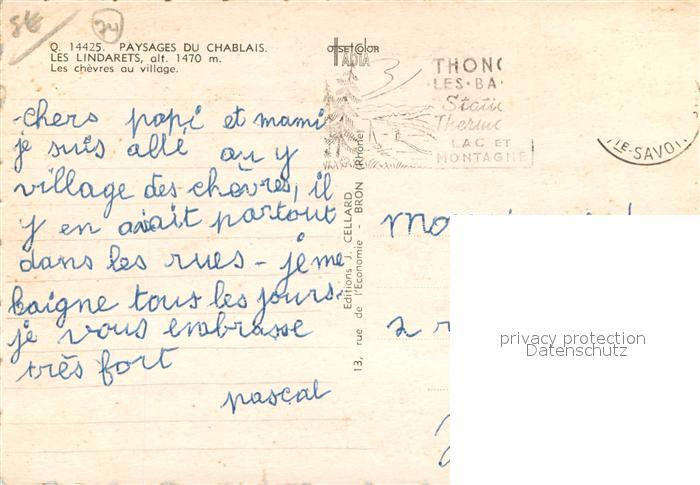 74
Q. 14425. PAYSAGES DU CHABLAIS.
LES LINDARETS, alt. 1470 m.
Les chèvres au village.
chers papi et mami
je suis allé au y
village des chèvres, il
y en avait partout
dans les rues - je me
baigne tous les jours.
je vous embrasse
très fort
pascal
OFFSET COLOR
IADIA
Editions J. CELLARD
13, rue de l'Economie - BRON (Rhône)
THON
LES-BA
Stati
Therm
LAC ET
MONTAGNE
TE-SAVOI
privacy protection
Datenschutz